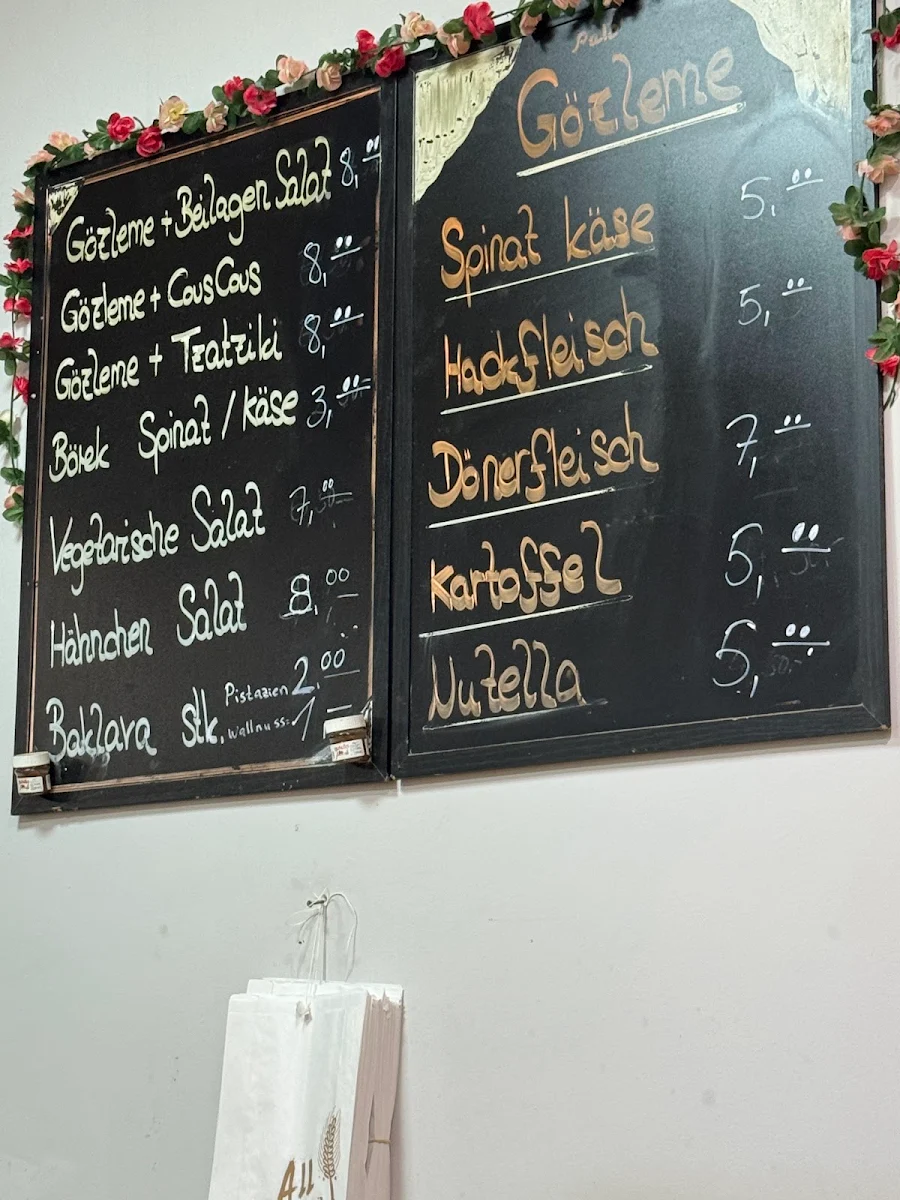 Gözleme + Beilagen Salat 8,00
Gözleme + CousCous 8,00
Gözleme + Tzatziki 8,00
Börek Spinat / käse 3,00
Vegetarische Salat 7,00
Hähnchen Salat 8,00
Baklava stk. Pistazien 2,00
Wallnuss: 1
Gözleme
Spinat käse 5,00
Hackfleisch 5,00
Dönerfleisch 7,00
Kartoffel 5,00
Nutella 5,00
All